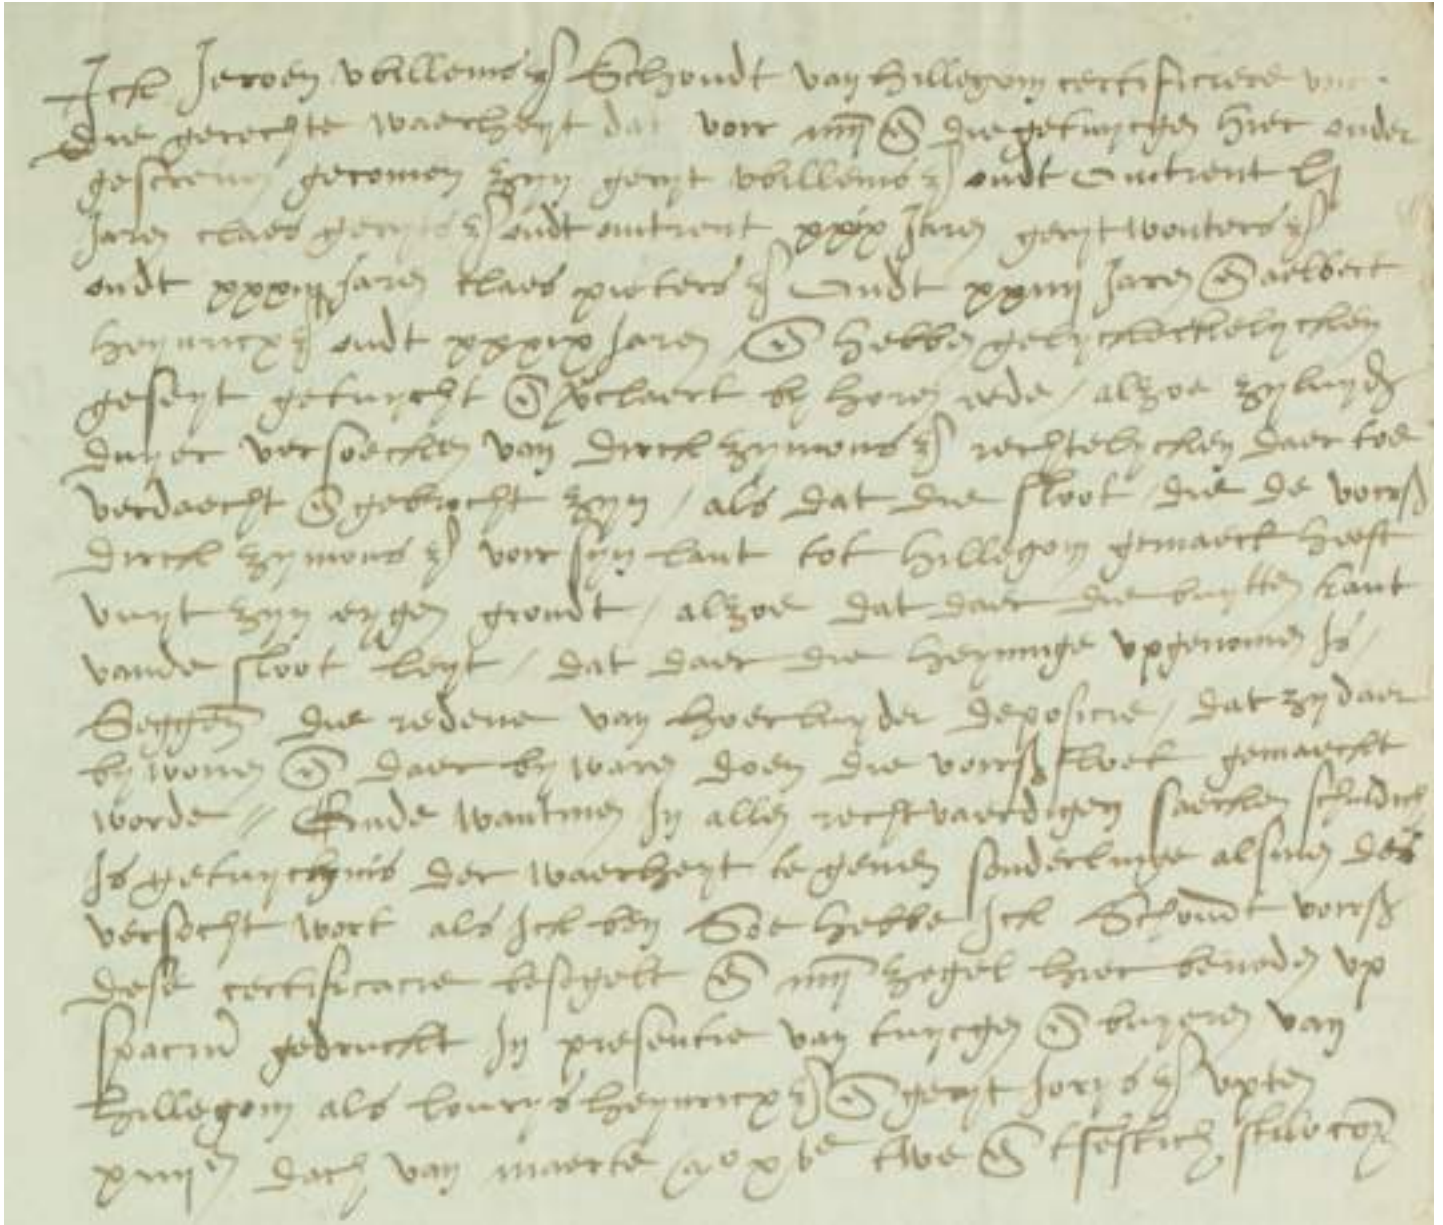 Ick Jeroen Willems z Schoudt van Hillegom certificiere voir
die gerechte waerheyt dat voir mij en die getuygen hier onder
gescreven gecomen zijn geryt Willems z oudt omtrent lj
Jaren claes geryts z oudt omtrent xxix Jaren geryt wouters z
oudt Jaren claes pieters z Oudt xxiiij Jaren en aelbert
heynricx z oudt xxxix Jaren en hebben gelyckerlicken
geseyt getuycht en verclaert by horen eede / alzoe zyluyden
duer versoecken van dirck zymons z rechtelycken daer toe
verdaecht en gebrocht zijn / als dat die sloot die de voirs
dirck zymons z voir syn lant tot hillegom gemaeckt heeft
vuyt zyn eygen grondt / alzoe dat daer die buytten kant
vande sloot leyt / dat daer die heyninge upgenomen is /
Seggen die redene van hoerluyder deposicie / dat zy daer
by wonen en daer by waren doen die voirs sloot gemaeckt
worde // Ende wantmen In allen rechtvaerdigen saecken schuldich
Is getuychnis der waerheyt te geven sonderlinge alsmen des
versocht wort als Ick ben Soe hebbe Ick Schoudt voirs
dese certificacie besegelt en mij zegel hier beneden up
spacium gedruckt In presentie van tuygen en bueren van
Hillegom als lourys heynricx z en geryt Jorys z upten
xiiij en dach van maerte a o xv c twe en tsestich stilo com